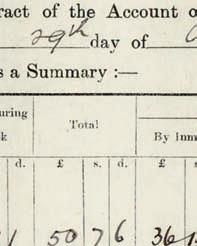 ract of the Account o
29th day of
s a Summary :—
uring
k
Total
By Inm
d. £ s. d. £ s
1 50 7 6 36 1